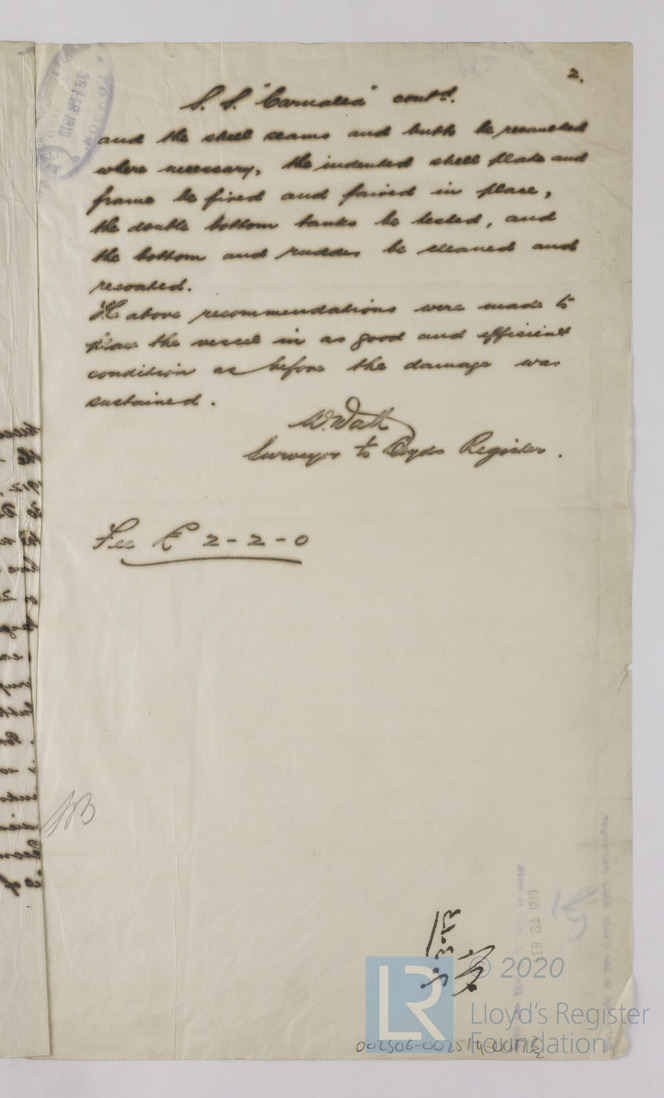 2.
S. S. "Carnalea" contd.
and the shell seams and butts be recaulked
where necessary, the indented shell plate and
frame be fired and faired in place,
the double bottom tanks be tested, and
the bottom and rudder be cleaned and
recoated.
The above recommendations were made to
place the vessel in as good and efficient
condition as before the damage was
sustained.
W. Watt
Surveyor to Lloyds Register.
Fee £ 2-2-0
© 2020
LR
Lloyd's Register
Foundation